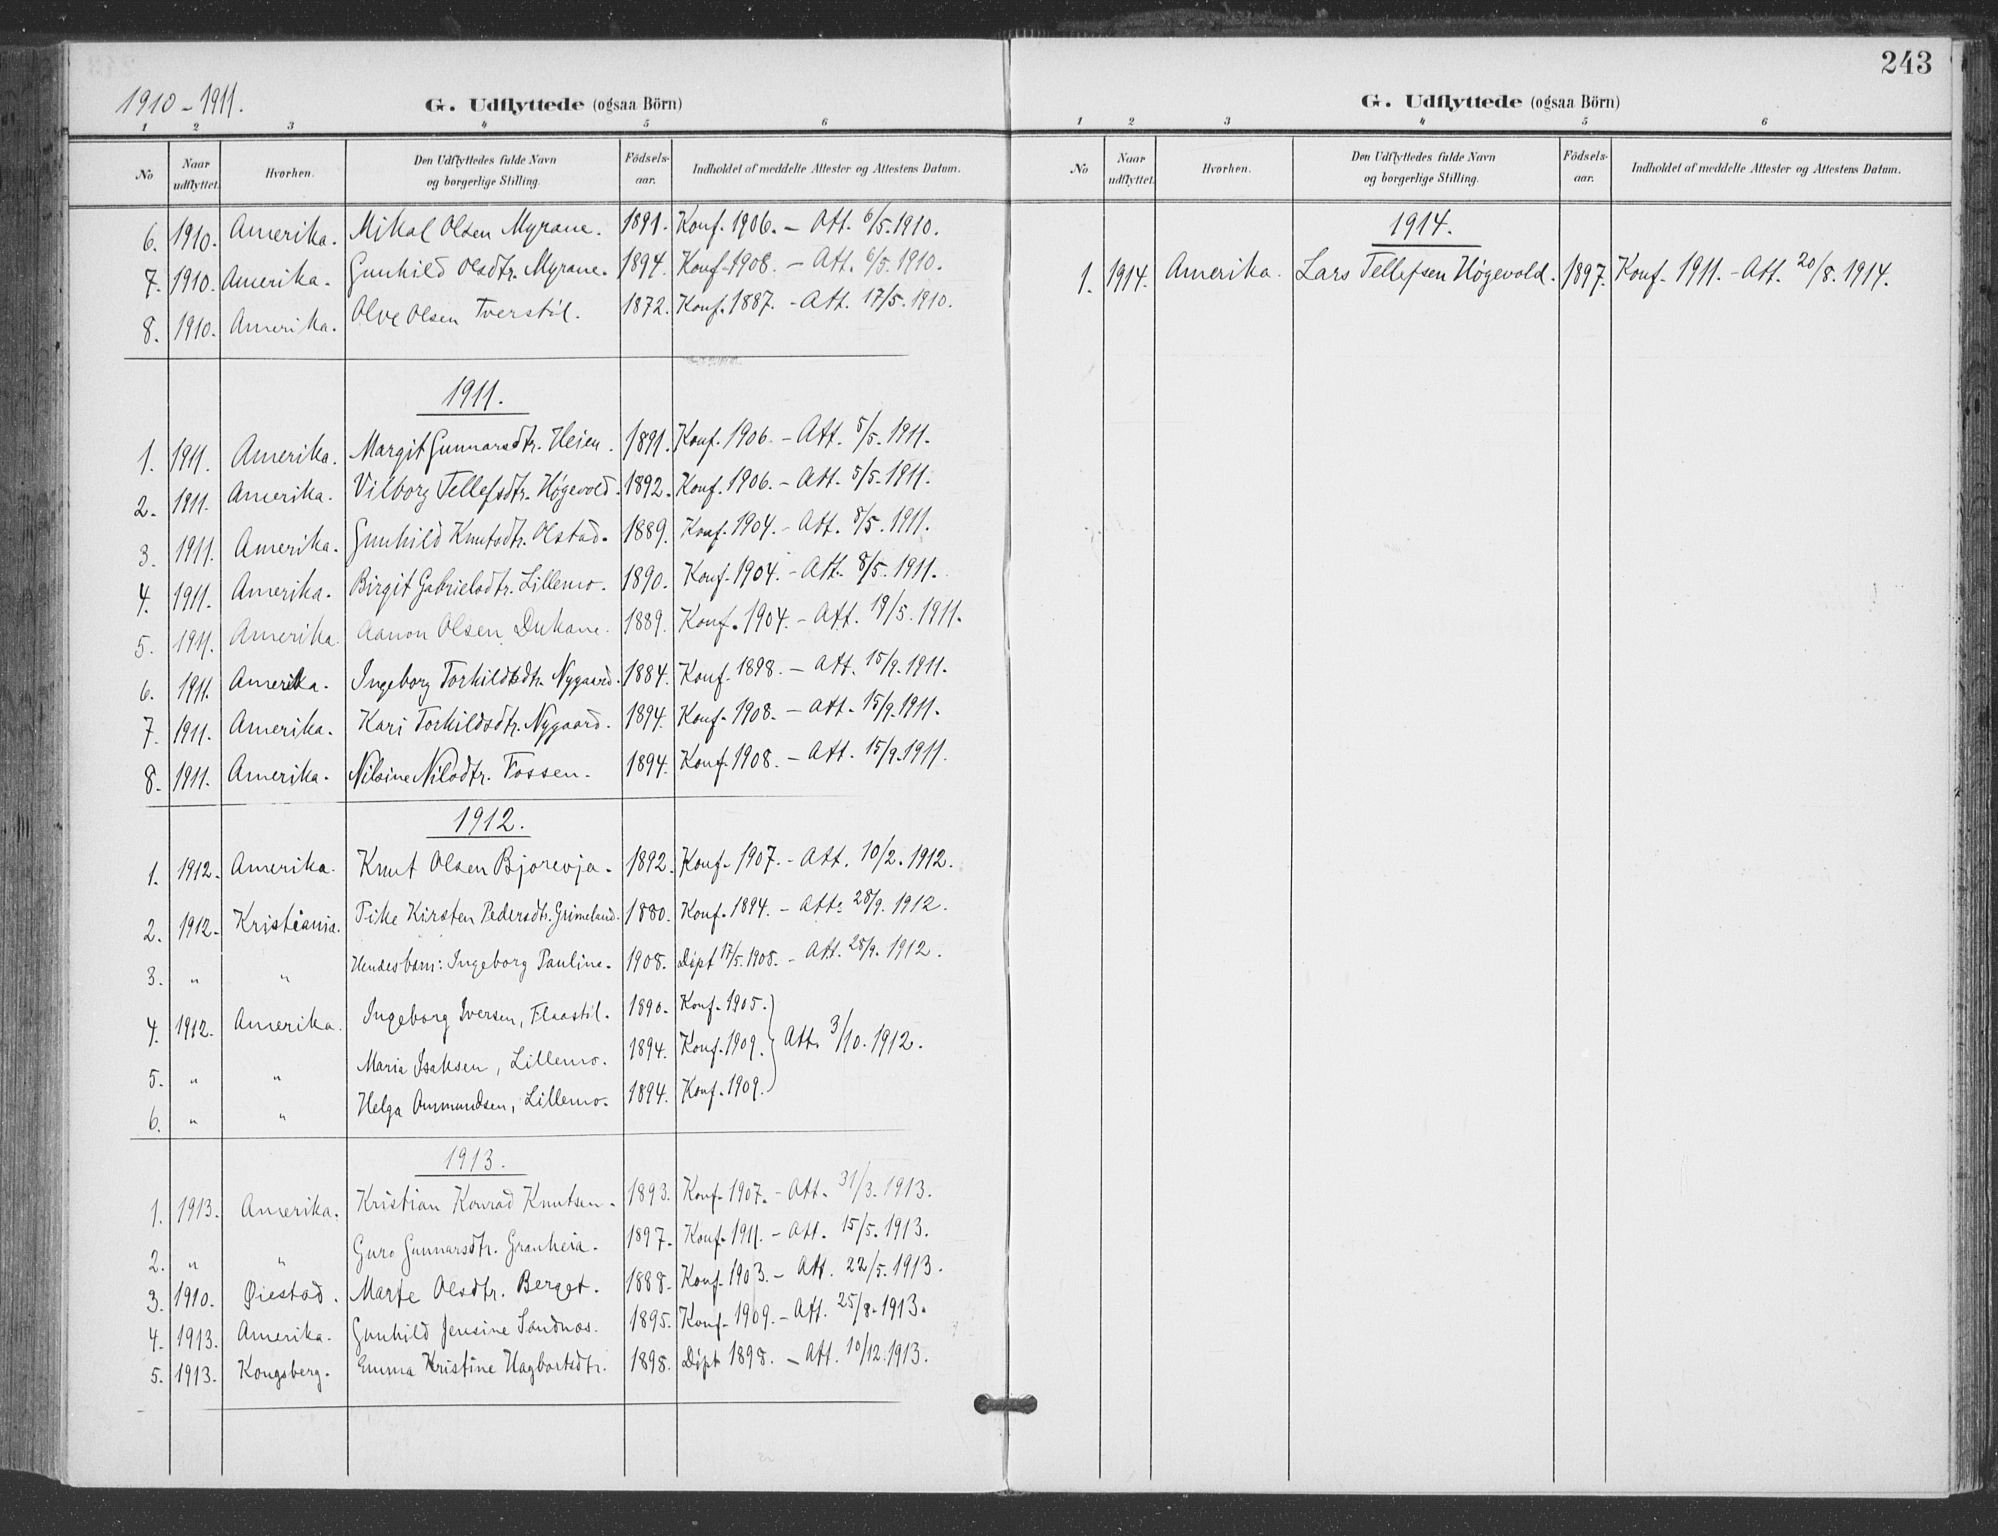 1910 - 1911.
G. Udflyttede (ogsaa Börn)
1 2 3 4 5 6
No Naar udflyttet. Hvorhen. Den Udflyttedes fulde Navn og borgerlige Stilling. Födsels-aar. Indholdet af meddelte Attester og Attestens Datum.
6. 1910. Amerika. Mikal Olsen Myrane. 1891. Konf. 1906. - Att. 6/5. 1910.
7. 1910. Amerika. Gunhild Olsdtr. Myrane. 1894. Konf. 1908. - Att. 6/5. 1910.
8. 1910. Amerika. Olve Olsen Tverstöl. 1872. Konf. 1887. - Att. 17/5. 1910.
1911.
1. 1911. Amerika. Margit Gunnarsdtr. Heien. 1891. Konf. 1906. - Att. 5/5. 1911.
2. 1911. Amerika. Vilborg Tellefsdtr. Høgevold. 1892. Konf. 1906. - Att. 5/5. 1911.
3. 1911. Amerika. Gunhild Knutsdtr. Olstad. 1889. Konf. 1904. - Att. 8/5. 1911.
4. 1911. Amerika. Birgit Gabrielsdtr. Lillemo. 1890. Konf. 1904. - Att. 8/5. 1911.
5. 1911. Amerika. Aanon Olsen Dukane. 1889. Konf. 1904. - Att. 19/5. 1911.
6. 1911. Amerika. Ingeborg Torkildsdtr. Nygaard. 1884. Konf. 1898. - Att. 15/9. 1911.
7. 1911. Amerika. Kari Torkildsdtr. Nygaard. 1894. Konf. 1908. - Att. 15/9. 1911.
8. 1911. Amerika. Nilsine Nilsdtr. Fossen. 1894. Konf. 1908. - Att. 15/9. 1911.
1912.
1. 1912. Amerika. Knut Olsen Bjorevja. 1892. Konf. 1907. - Att. 10/2. 1912.
2. 1912. Kristiania. Kirsten Pedersdtr. Grimeland. 1880. Konf. 1894. - Att. 28/9. 1912.
3. " " Hendes barn: Ingeborg Pauline. 1908. Döpt 17/5. 1908. - Att. 28/9. 1912.
4. 1912. Amerika. Ingeborg Iversen, Flaastöl. 1890. Konf. 1905.
5. " " Maria Isaksen, Lillemo. 1894. Konf. 1909. Att. 3/10. 1912.
6. " " Helga Ommundsen, Lillemo. 1894. Konf. 1909.
1913.
1. 1913. Amerika. Kristian Konrad Knutsen. 1893. Konf. 1907. - Att. 31/3. 1913.
2. " " Guro Gunnarsdtr. Granheia. 1897. Konf. 1911. - Att. 15/5. 1913.
3. 1910. Øiestad. Marte Olsdtr. Berget. 1888. Konf. 1903. - Att. 22/5. 1913.
4. 1913. Amerika. Gunhild Jensine Sandnes. 1895. Konf. 1909. - Att. 25/8. 1913.
5. 1913. Kongsberg. Emma Kristine Hagbartsdtr. 1898. Döpt 1898. - Att. 10/12. 1913.
243
G. Udflyttede (ogsaa Börn)
1 2 3 4 5 6
No Naar udflyttet. Hvorhen. Den Udflyttedes fulde Navn og borgerlige Stilling. Födsels-aar. Indholdet af meddelte Attester og Attestens Datum.
1914.
1. 1914. Amerika. Lars Tellefsen Høgevold. 1897. Konf. 1911. - Att. 20/8. 1914.